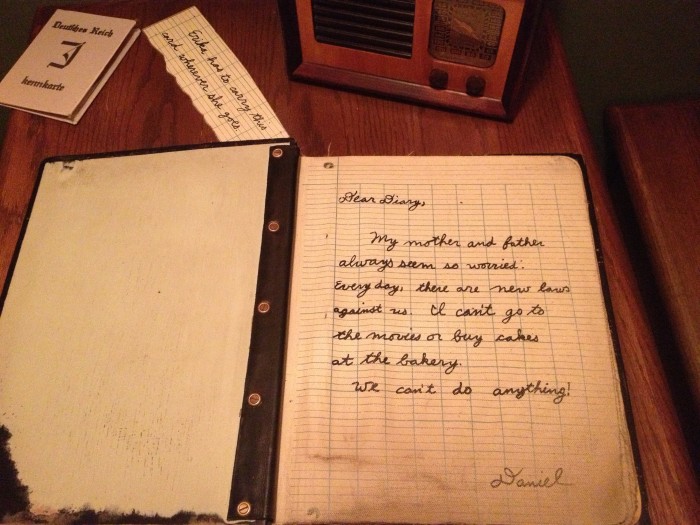 Deutsches Reich
J
kennkarte
Erika has to carry this
card wherever she goes
Dear Diary,
My mother and father
always seem so worried.
Every day, there are new laws
against us. I can't go to
the movies or buy cakes
at the bakery.
We can't do anything!
Daniel